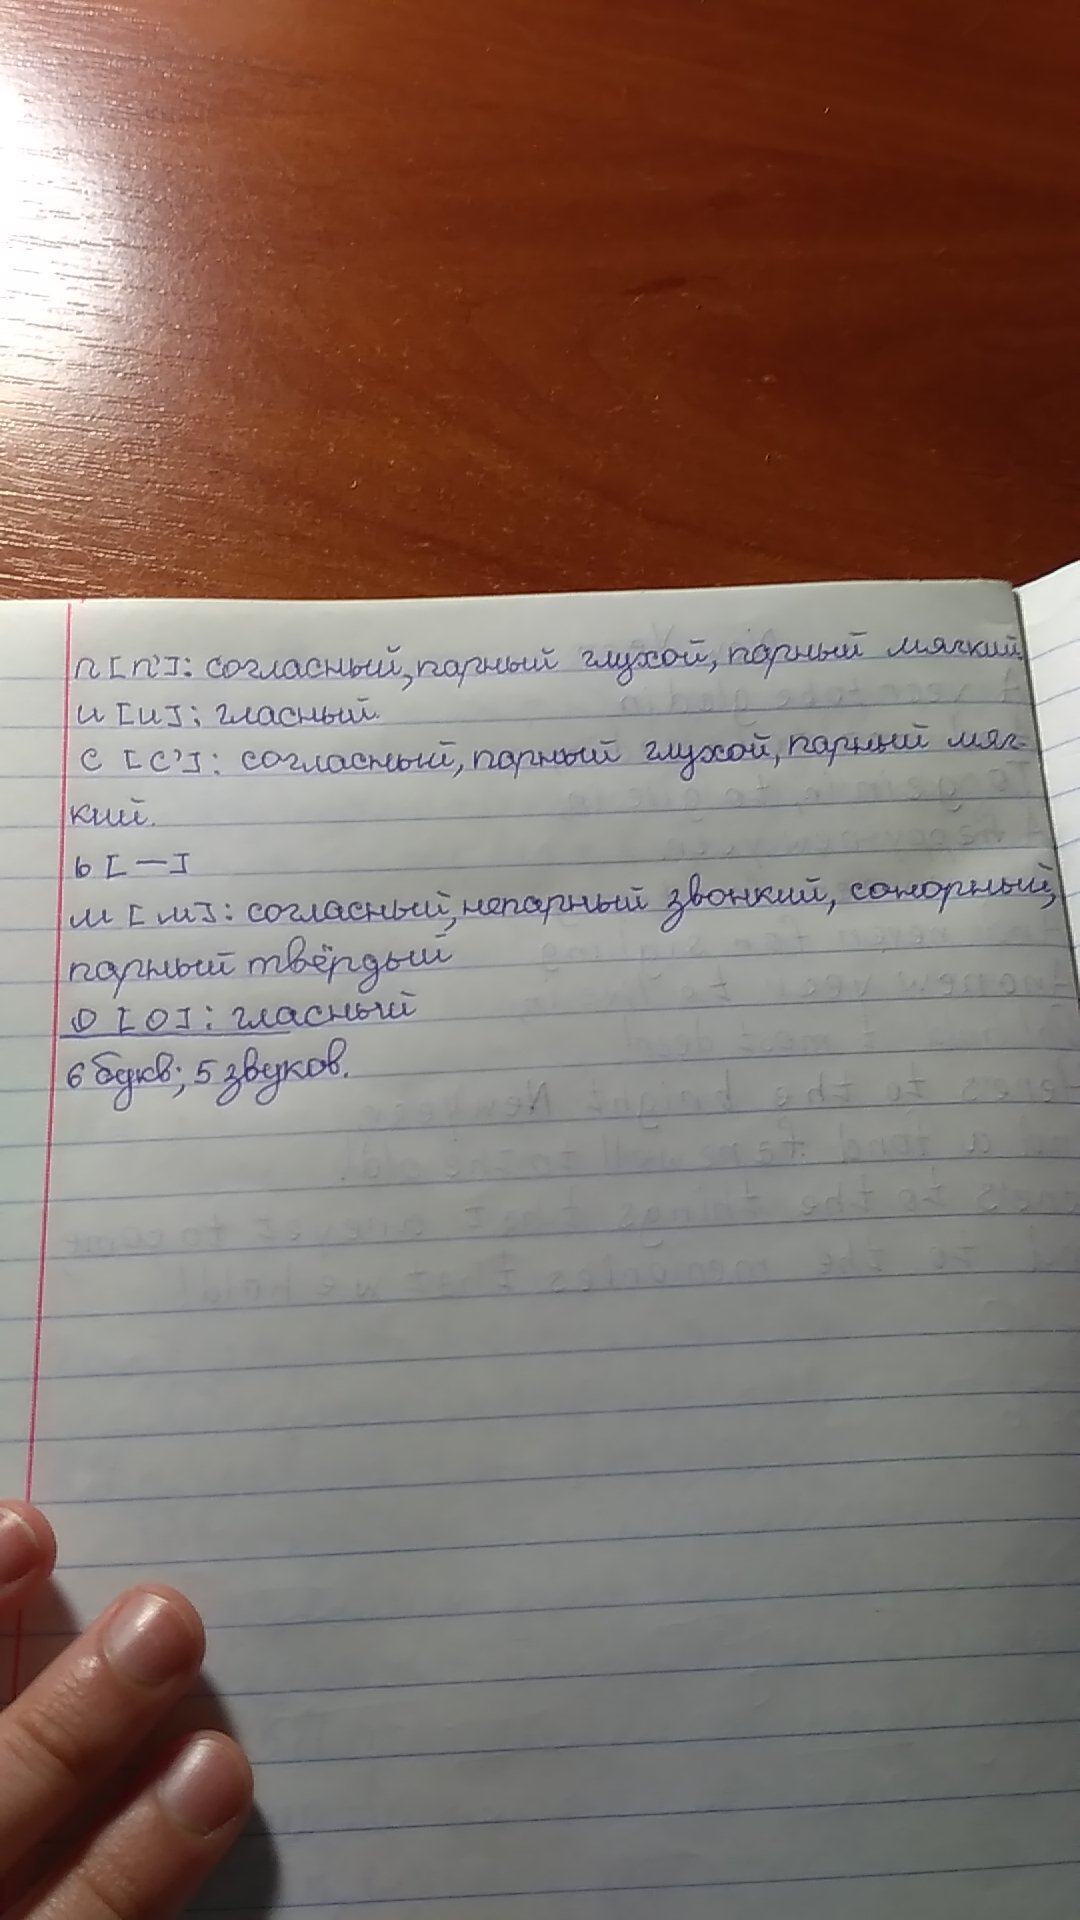 п [п']: согласный, парный глухой, парный мягкий.
и [и]: гласный.
с [с']: согласный, парный глухой, парный мяг-
кий.
ь [—]
м [м]: согласный, непарный звонкий, сонорный,
парный твёрдый
о [о]: гласный
6 букв; 5 звуков.